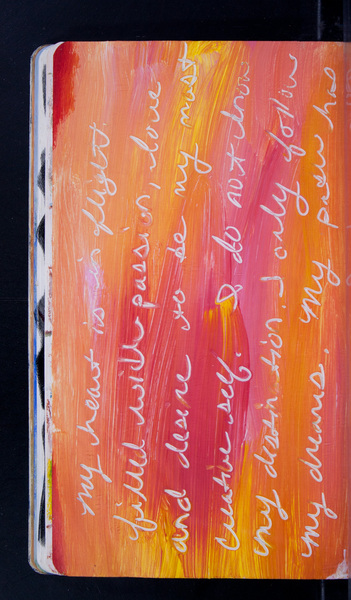 my heart is in flight.
filled with passion, love
and desire to be my most
creative self. I do not know
my destination. I only follow
my dreams. My pen has